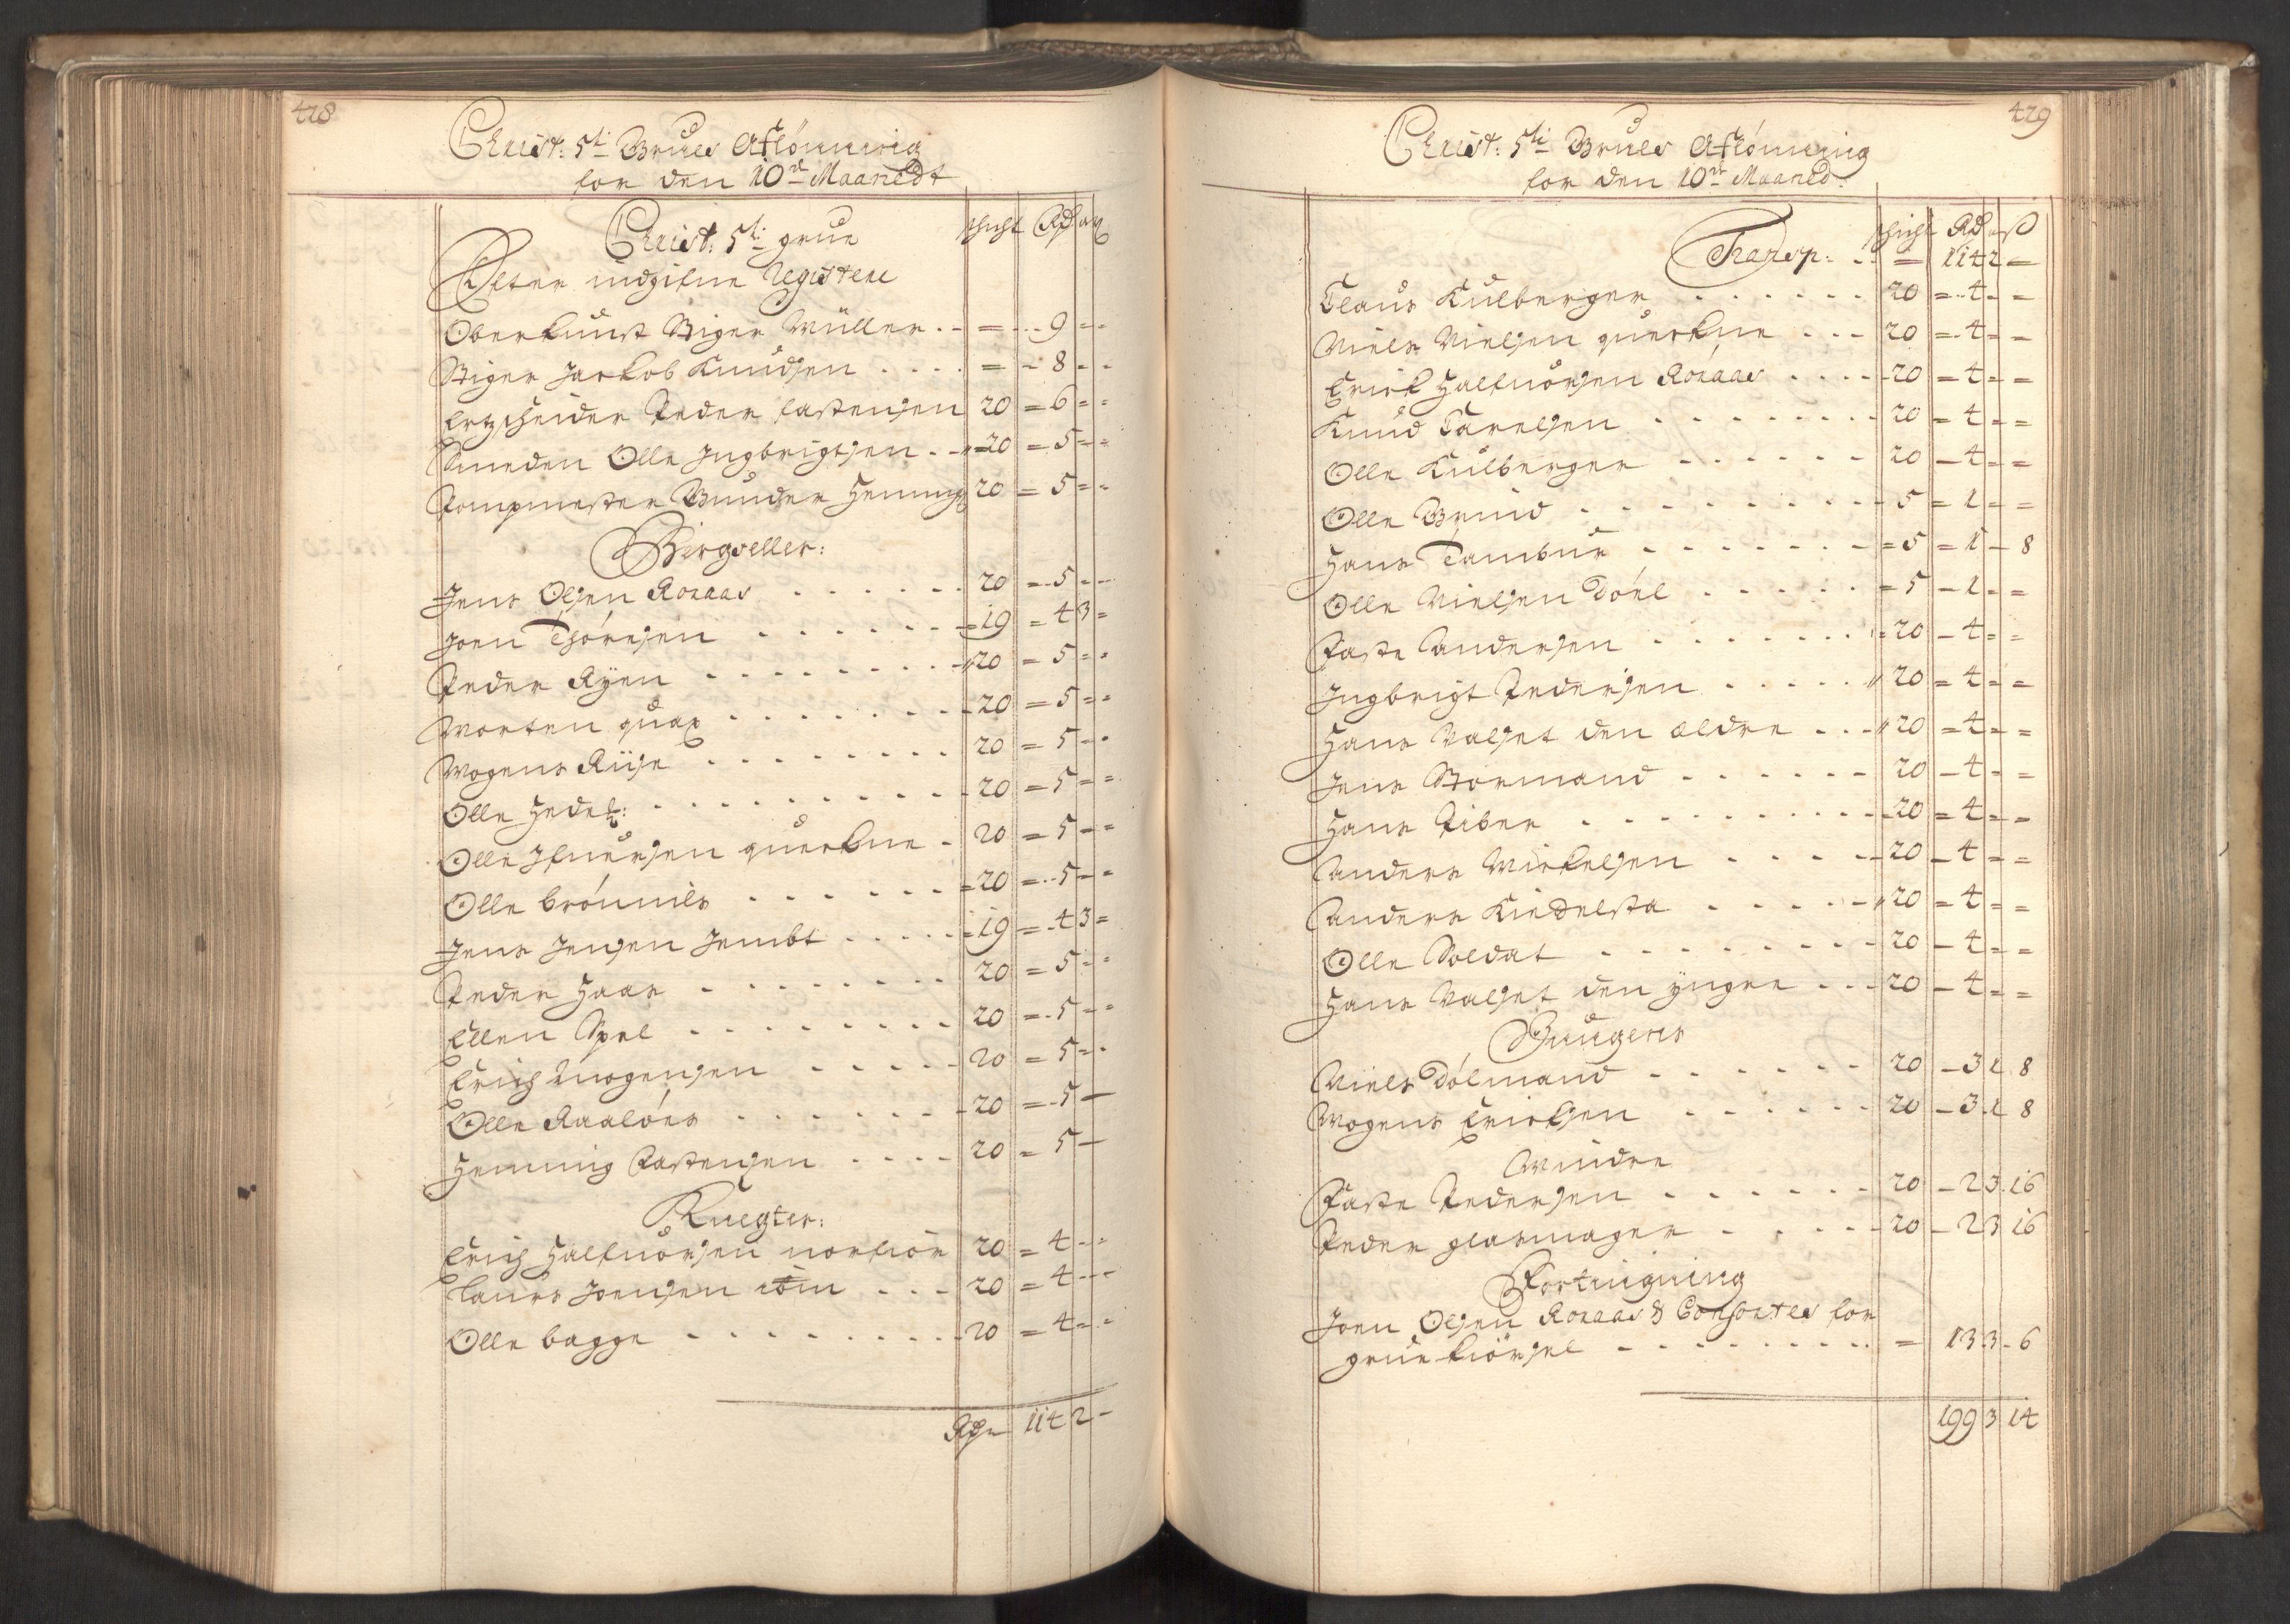 428
Christ: 5ti Grues Aflønning
for den 10de Maanedt
Christ: 5ti grue
schicht Rdr ort
Efter indgifne Registere
Oberkunst Stiger Müller . . = . . 9 = =
Stiger Jackob Knudsen . . . . = - 8 - -
Ertzscheider Peder Fastensen 20 = 6 = =
Smeden Olle Ingbrigtsen . . 20 = 5 = =
Pompmester Gunder Heming 20 = 5 = -
Bergveller:
Jens Olsen Roraas . . . . . . 20 = 5 - -
Joen Thóresen . . . . . . 19 = 4 3 =
Peder Ryen . . . . . . . 20 = 5 = =
Morten quax . . . . . . . 20 = 5 = =
Mogens Riise . . . . . . . . 20 = 5 - -
Olle Hedel: . . . . . . . . . 20 = 5 = =
Olle Ifuersen querkne . 20 = 5 - =
Olle brónnils . . . . . . 20 = 5 - =
Jens Jensen Jembt . . . . . 19 = 4 3 =
Peder Haar . . . . . . . . 20 = 5 = =
Ellen Spel . . . . . . . . 20 = 5 - =
Erich Mogensen . . . . . 20 = 5 = -
Olle Raalóes . . . . . . . 20 = 5 -
Hemming Fastensen . . . . 20 = 5 -
Knegter:
Erich Halfuorsen 20 = 4 - =
Laurs Joensen . . . 20 = 4 - -
Olle bagge . . . . . . . . . 20 = 4 = =
Rdr 114 2 -
429
Christ: 5ti Grues Aflønning
for den 10de Maaned:
schicht Rd ort ß
Transp: . . = 114 2 =
Claus Kulberger . . . . . . 20 = 4 - -
Niels Nielsen querkne . . . 20 = 4 = =
Erick Halfuórsen Roraas . . . . 20 = 4 = =
Knud Carelsen . . . . . . . . 20 = 4 = =
Olle Kulberger . . . . . . 20 - 4 = =
Olle Brind . . . . . . . . . 5 = 1 = =
Hans Tambur . . . . . . . = 5 = 1 - 8
Olle Nielsen Dóel . . . . . = 5 - 1 - =
Faste Andersen . . . . . . . = 20 - 4 = =
Ingbrigt Pedersen . . . . . 20 = 4 = =
Hans Valset den ældre . . . 20 = 4 = =
Jens Stormand . . . . . . 20 - 4 = =
Hans Piber . . . . . . . . . . 20 = 4 = =
Anders Mickelsen . . . . . 20 - 4 = =
Anders Kiedelsta . . . . . 20 = 4 = =
Olle Soldat . . . . . . . . . 20 - 4 = =
Hans Valset den yngre . . . 20 - 4 = =
Gungeres
Niels Dólmand . . . . . . 20 - 3 1 8
Mogens Ericksen . . . . . . 20 - 3 1 8
Mindre
Faste Pedersen . . . . . . 20 - 2 3 16
Peder glasmager . . . . . 20 - 2 3 16
Fortingning
Joen Olsen Roraas & Consortes for
grue kiórsel . . . . . . . . . = 13 3 - 6
199 3 14